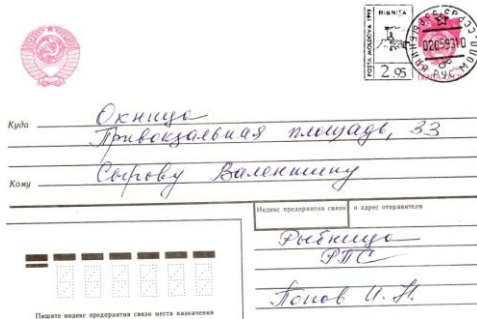 RIBNIŢA
POSTA MOLDOVA 1993
2.95
020593 10
Куда Окница
Привокзальная площадь, 33
Кому Сырову Валентину
Индекс предприятия связи и адрес отправителя
Рыбница
РПС
Попов И. Н.
Пишите индекс предприятия связи места назначения